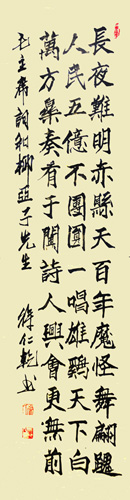 長夜難明赤縣天百年魔怪舞翩躚
人民五億不團圓一唱雄鷄天下白
萬方樂奏有于闐詩人興會更無前
毛主席詞和柳亞子先生 徐仁乾書